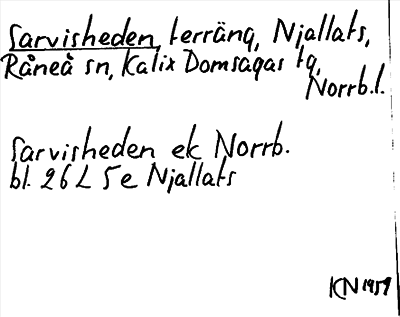 Sarvisheden, terräng, Njallats,
Råneå sn, Kalix Domsagas tg,
Norrb.l.
Sarvisheden ek Norrb.
bl. 26 L 5 e Njallats
KN 1959